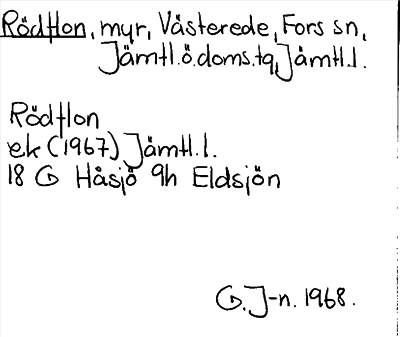 Rödflon, myr, Västerede, Fors sn,
Jämtl.ö.doms.tg, Jämtl.l.
Rödflon
ek (1967) Jämtl.l.
18 G Håsjö 9h Eldsjön
G. J-n. 1968.